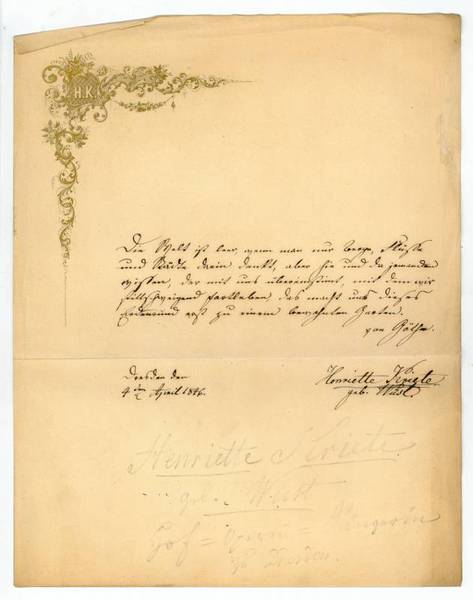 H.K.
Die Welt ist leer, wenn man nur Berge, Flüsse
und Städte darin denkt, aber hie und da jemanden
wissen, der mit uns übereinstimt, mit dem wir
stillschweigend fortleben das macht uns dieses
Erdenrund erst zu einem bewohnten Garten.
von Göthe.
Dresden den
4 April 1846.
Henriette Kriete
geb. Wüst.
Henriette Kriete
geb. Wüst
Hof = Opern = Sängerin
zu Dresden.